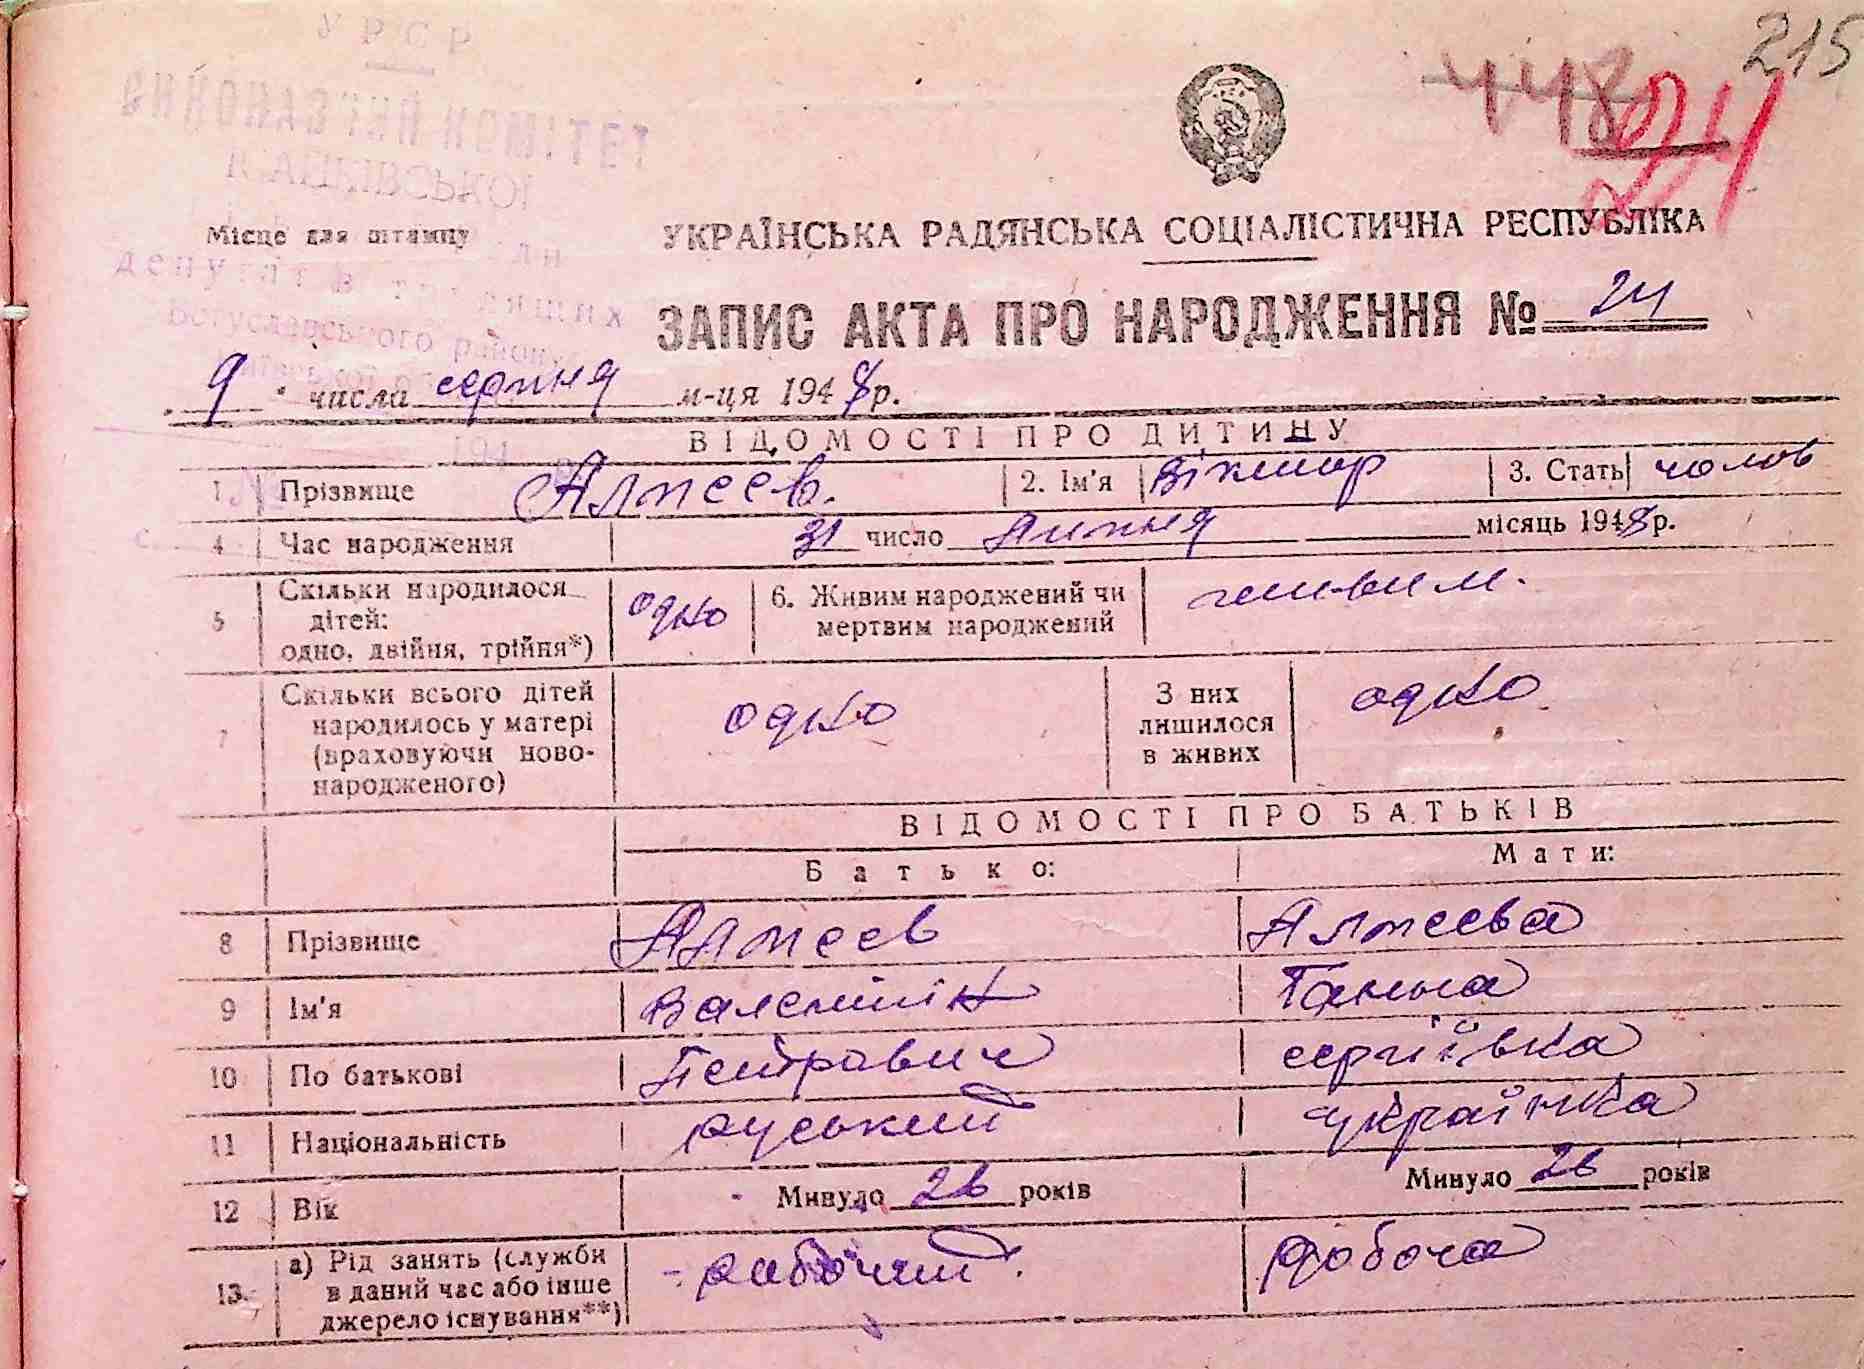 215
448
24
УРСР
ВИКОНАВЧИЙ КОМІТЕТ
Місце для штампу
депутатів трудящих
Богуславського району
УКРАЇНСЬКА РАДЯНСЬКА СОЦІАЛІСТИЧНА РЕСПУБЛІКА
ЗАПИС АКТА ПРО НАРОДЖЕННЯ № 24
„9“ числа серпня м-ця 1948 р.
ВІДОМОСТІ ПРО ДИТИНУ
1 Прізвище Алтеев. 2. Ім'я Віктор 3. Стать чолов
4 Час народження 31 число липня місяць 1948 р.
5 Скільки народилося дітей: одно, двійня, трійня*) одно 6. Живим народжений чи мертвим народжений живим.
7 Скільки всього дітей народилось у матері (враховуючи новонародженого) одно З них лишилося в живих одно
ВІДОМОСТІ ПРО БАТЬКІВ
Батько: Мати:
8 Прізвище Алтеев Алтеева
9 Ім'я Валентін Ганна
10 По батькові Петрович сергіївна
11 Національність руський українка
12 Вік Минуло 26 років Минуло 26 років
13. а) Рід занять (служби в даний час або інше джерело існування**) рабочий. робоча